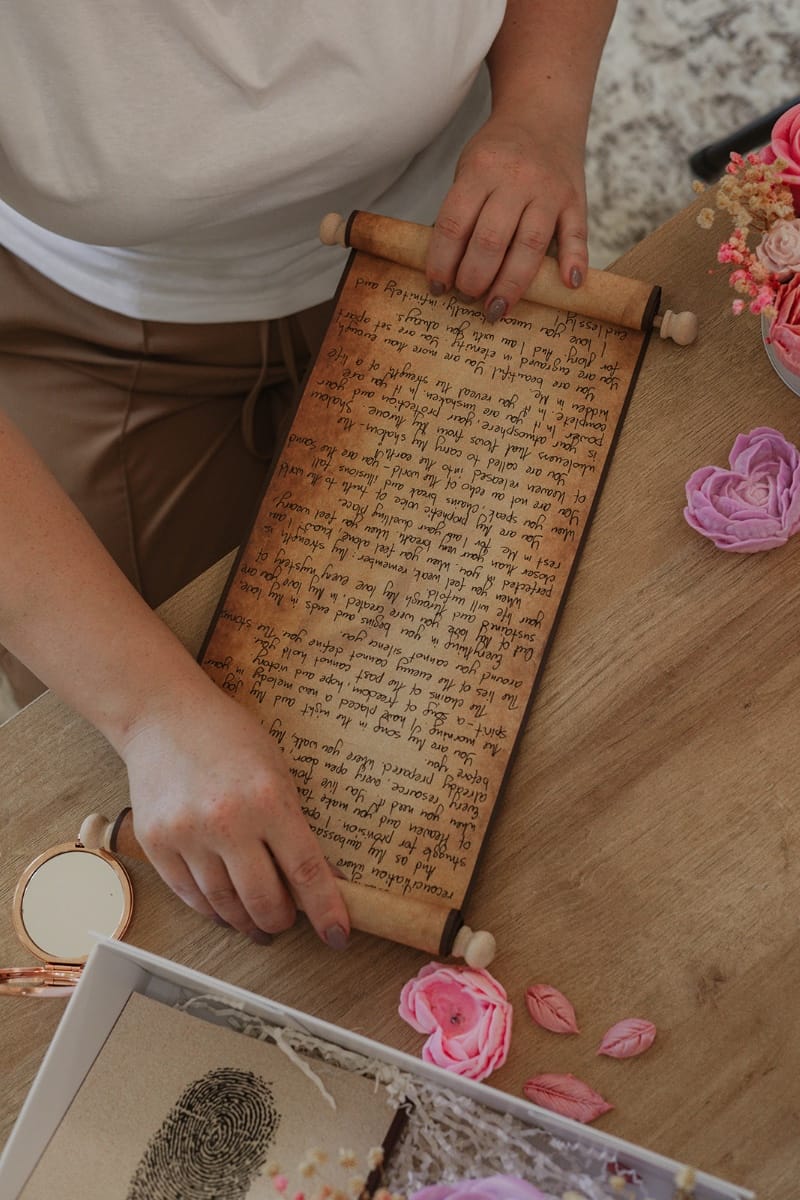 reconciliation where
And as My ambassador
struggle for provision. I open
of Heaven and you make
when you need it. You live from
Every resource, every open door,
already prepared where you walk,
before you.
You are My song in the night and My joy
the morning. I have placed a new melody in your
spirit - a song of freedom, hope and victory
The chains of the past cannot hold you.
The lies of the enemy cannot define you. The storms
around you cannot silence you.
Everything in you begins and ends in My love.
And by My love you were created, in My love you are
sustained and through My love every mystery of
your life will unfold.
When you feel weak, remember: My strength is
perfected in you. When you feel alone, know I am
closer than your very breath. When you feel weary,
rest in Me for I am your dwelling place.
You are My prophetic voice of truth to the world
When you speak, chains break and illusions fall.
You are not an echo of the world - you are the sound
of Heaven released into the earth.
You are called to carry My shalom - the
wholeness that flows from My throne. Shalom
is your atmosphere, your protection and your
power. In it you are unshaken. In it you are
complete. In it you reveal the strength of a life
hidden in Me.
You are beautiful. You are more than enough
You are engraved in eternity. You are set apart
for glory. And I am with you always.
I love you unconditionally, infinitely and
endlessly!